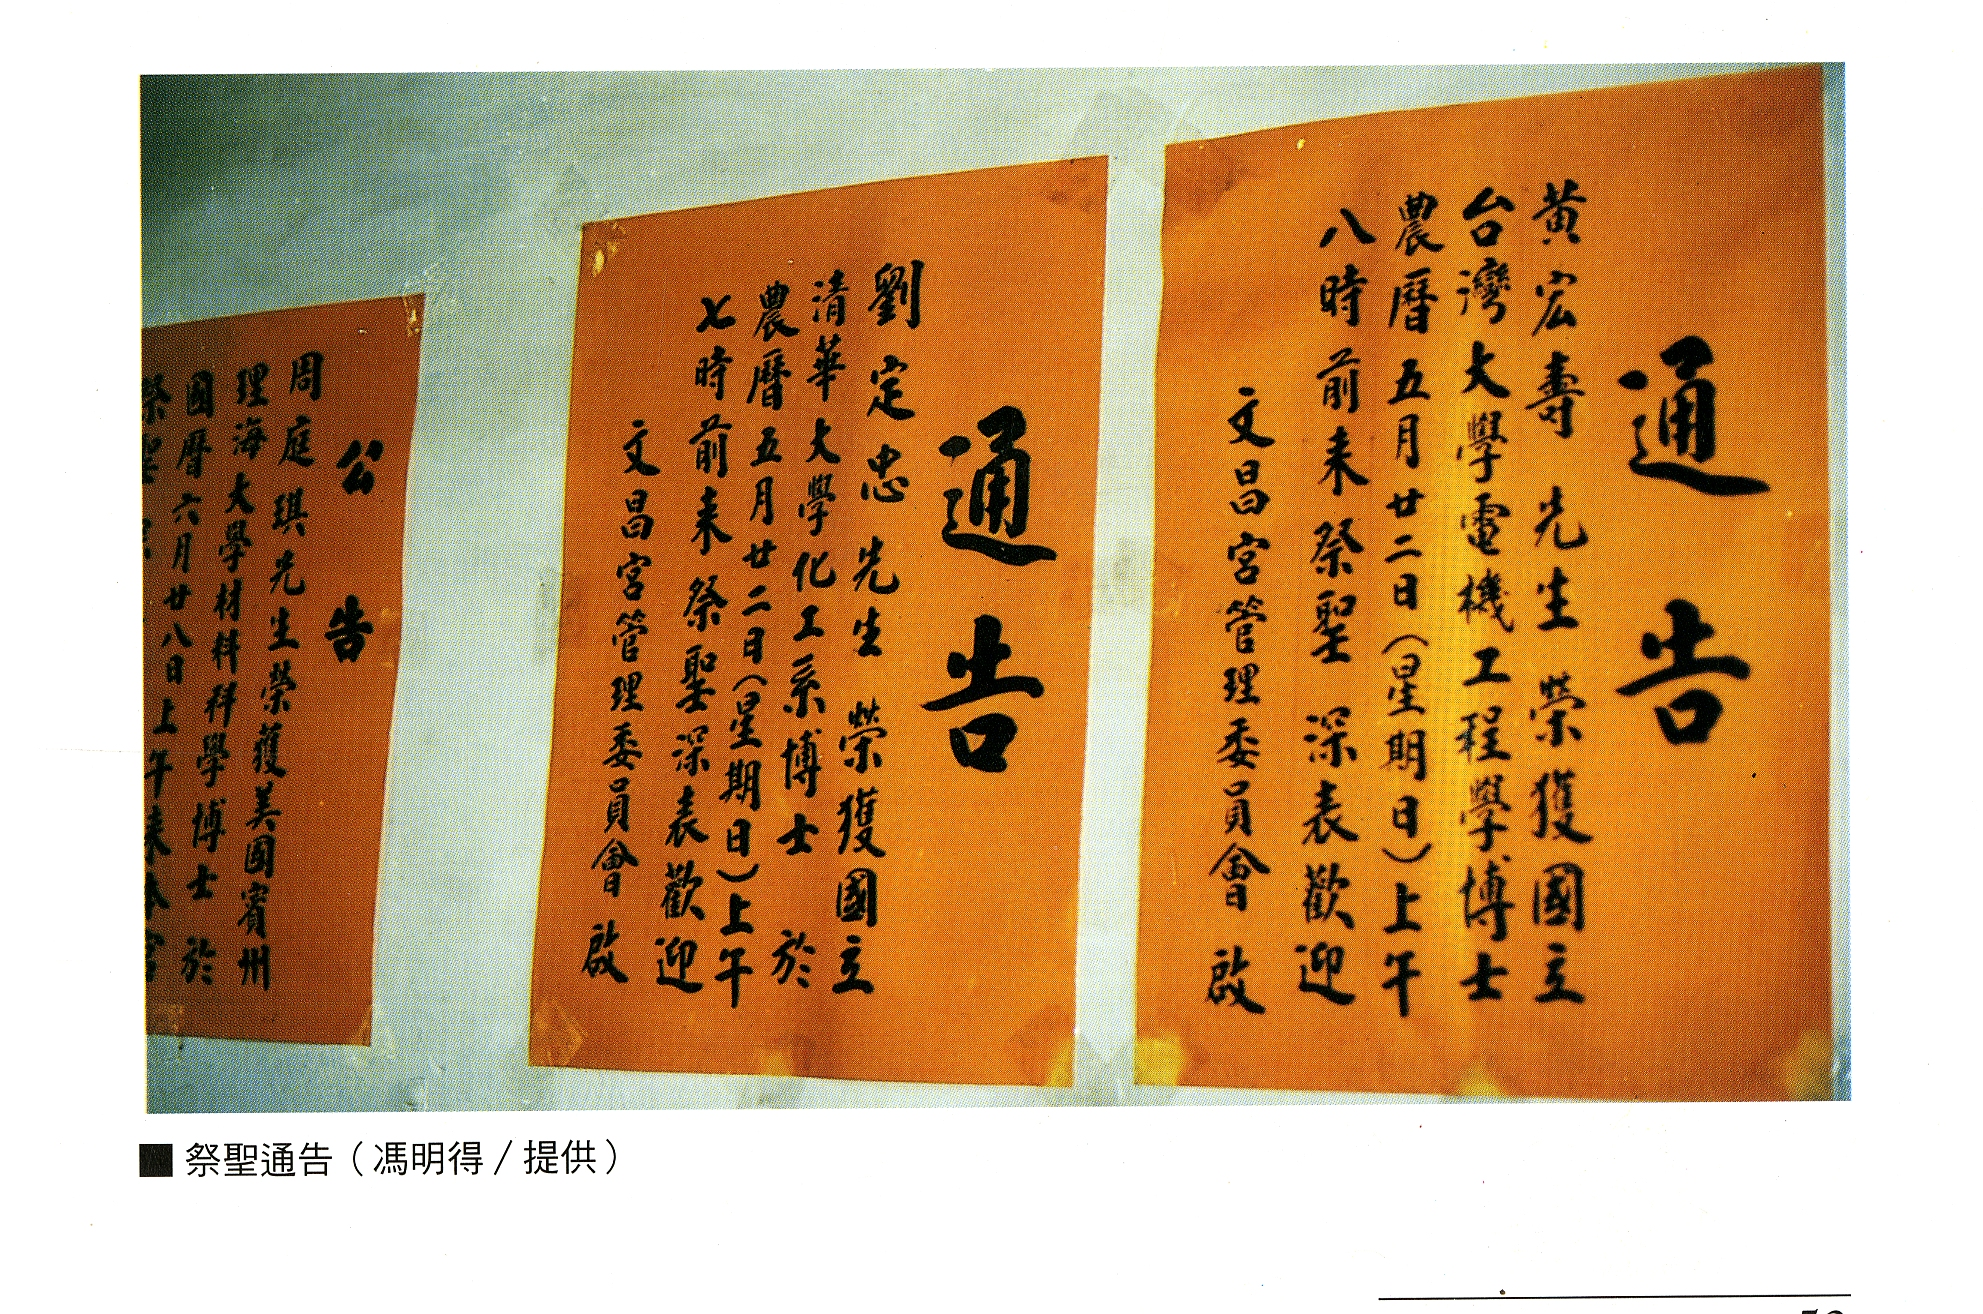 通告
黃宏壽先生榮獲國立
台灣大學電機工程學博士
農曆五月廿二日（星期日）上午
八時前来祭聖深表歡迎
文昌宮管理委員會啟
通告
劉定忠先生榮獲國立
清華大學化工系博士於
農曆五月廿二日（星期日）上午
七時前来祭聖深表歡迎
文昌宮管理委員會啟
公告
周庭琪先生榮獲美國賓州
理海大學材料科學博士於
國曆六月廿八日上午来本宮
祭聖
■祭聖通告（馮明得/提供）